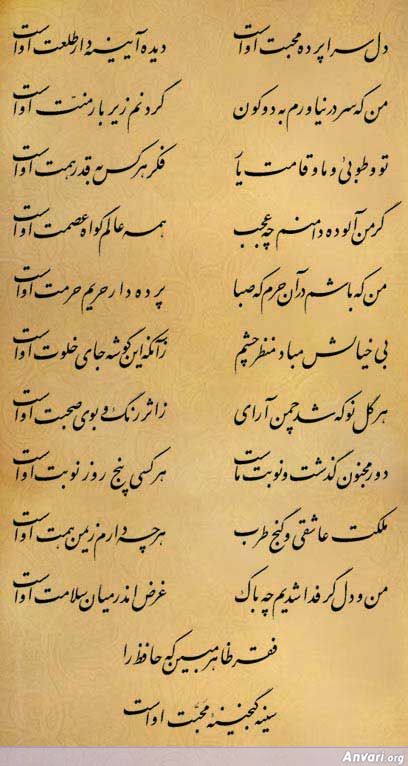 دل سراپرده محبت اوست دیده آیینه دار طلعت اوست
من که سر در نیاورم به دو کون گردنم زیر بار منّت اوست
تو و طوبیٰ و ما و قامت یار فکر هر کس به قدر همت اوست
گر من آلوده دامنم چه عجب همه عالم گواه عصمت اوست
من که باشم در آن حرم که صبا پرده دار حریم حرمت اوست
بی خیالش مباد منظر چشم زآنکه این گوشه جای خلوت اوست
هر گل نو که شد چمن آرای ز اثر رنگ و بوی صحبت اوست
دور مجنون گذشت و نوبت ماست هر کسی پنج روز نوبت اوست
ملکت عاشقی و گنج طرب هر چه دارم ز یمن همت اوست
من و دل گر فدا شدیم چه باک غرض اندر میان سلامت اوست
فقر ظاهر مبین که حافظ را
سینه گنجینهٔ محبّت اوست
Anvari.org